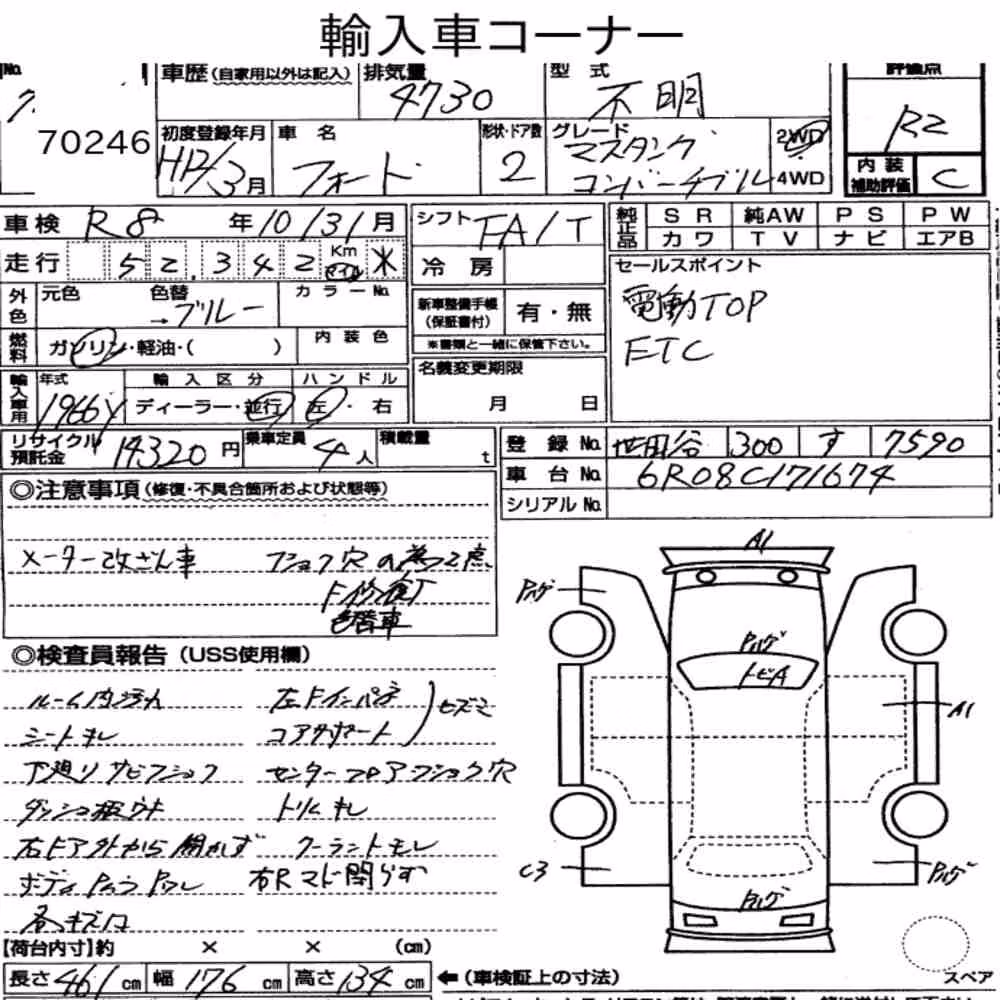 輸入車コーナー
No. 車歴 (自家用以外は記入) 排気量 型式 評価点
4730 不明 R2
70246
初度登録年月 車名 形状・ドア数 グレード 2WD
H12/3月 フォード 2 マスタング コンバーチブル 4WD
内装補助評価 C
車検 R8年10/31月 シフト FA/T 純正品 SR 純AW PS PW
カワ TV ナビ エアB
走行 52,342 Km マイル 冷房
セールスポイント
外色 元色 色替 カラーNo.
→ブルー
新車整備手帳(保証書付) 有・無
電動TOP
燃料 ガソリン・軽油・( ) 内装色
※書類と一緒に保管下さい。
ETC
輸入車用 年式 輸入区分 ハンドル 名義変更期限
1966y ディーラー・並行 左・右 月 日
リサイクル預託金 14320円 乗車定員 4人 積載量 t
登録No. 世田谷 300 す 7590
車台No. 6R08C171674
シリアルNo.
◎注意事項 (修復・不具合箇所および状態等)
メーター改ざん車 フショク穴の為づ2点
F修復
色替車
A1
◎検査員報告 (USS使用欄)
ルーム内汚れ
シートキレ
下廻りサビフショク センターフロアーフショク穴
トリムキレ
右ドア外から開かず クーラントモレ
右Rマド閉らず
各キズ凹
トビA
A1
C3
【荷台内寸】約 × × (cm)
長さ461cm 幅176cm 高さ134cm ←(車検証上の寸法)
スペア